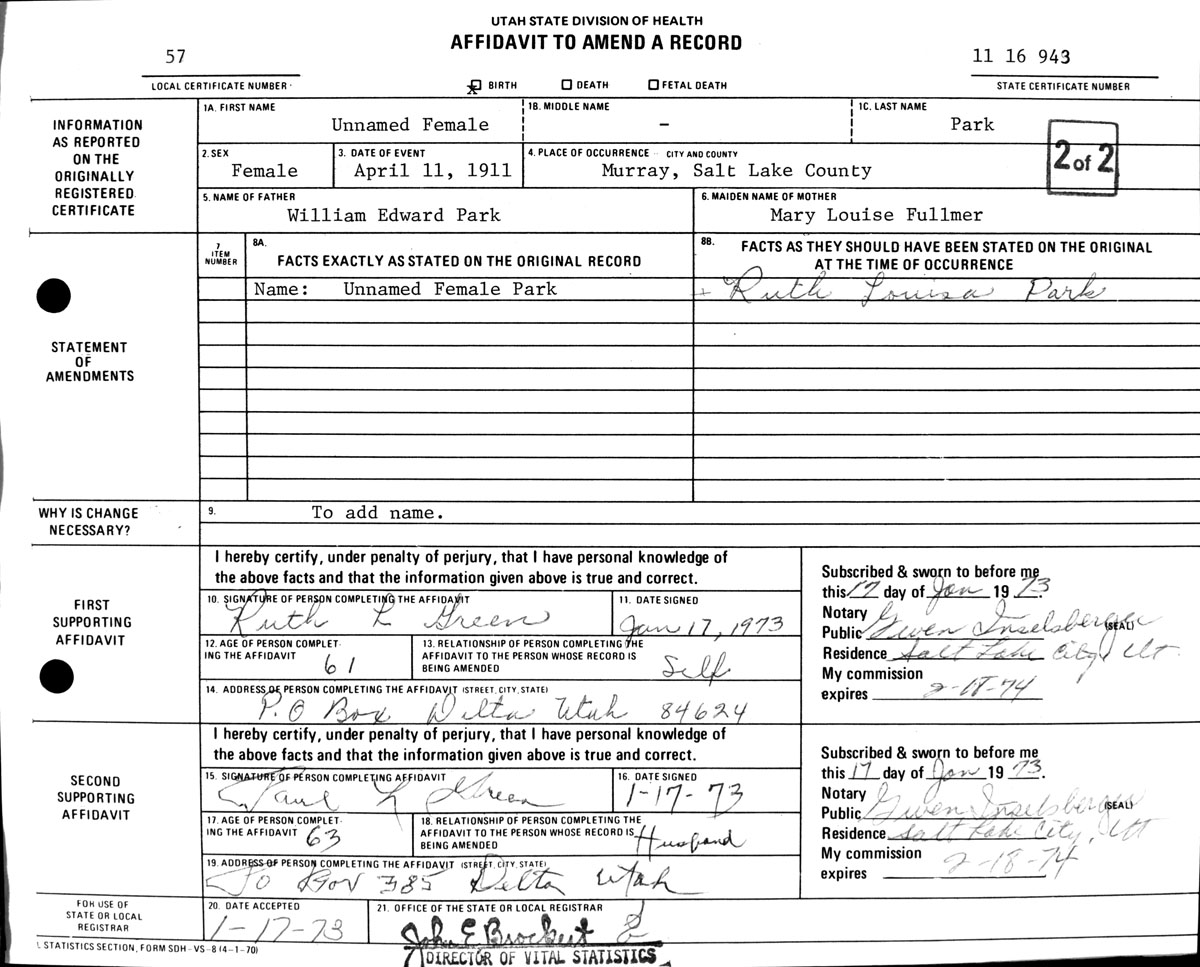 UTAH STATE DIVISION OF HEALTH
AFFIDAVIT TO AMEND A RECORD
57
11 16 943
LOCAL CERTIFICATE NUMBER
BIRTH DEATH FETAL DEATH
STATE CERTIFICATE NUMBER
INFORMATION
AS REPORTED
ON THE
ORIGINALLY
REGISTERED
CERTIFICATE
1A. FIRST NAME
Unnamed Female
1B. MIDDLE NAME
-
1C. LAST NAME
Park
2 of 2
2. SEX
Female
3. DATE OF EVENT
April 11, 1911
4. PLACE OF OCCURRENCE CITY AND COUNTY
Murray, Salt Lake County
5. NAME OF FATHER
William Edward Park
6. MAIDEN NAME OF MOTHER
Mary Louise Fullmer
STATEMENT
OF
AMENDMENTS
7
ITEM
NUMBER
8A.
FACTS EXACTLY AS STATED ON THE ORIGINAL RECORD
8B. FACTS AS THEY SHOULD HAVE BEEN STATED ON THE ORIGINAL
AT THE TIME OF OCCURRENCE
Name: Unnamed Female Park
+ Ruth Louisa Park
WHY IS CHANGE
NECESSARY?
9. To add name.
FIRST
SUPPORTING
AFFIDAVIT
I hereby certify, under penalty of perjury, that I have personal knowledge of
the above facts and that the information given above is true and correct.
10. SIGNATURE OF PERSON COMPLETING THE AFFIDAVIT
Ruth L Green
11. DATE SIGNED
Jan 17, 1973
12. AGE OF PERSON COMPLET-
ING THE AFFIDAVIT 61
13. RELATIONSHIP OF PERSON COMPLETING THE
AFFIDAVIT TO THE PERSON WHOSE RECORD IS
BEING AMENDED Self
14. ADDRESS OF PERSON COMPLETING THE AFFIDAVIT (STREET, CITY, STATE)
P.O Box Delta Utah 84624
Subscribed & sworn to before me
this 17 day of Jan 19 73.
Notary
Public Gwen Inselsberger (SEAL)
Residence Salt Lake City, Ut.
My commission
expires 2-18-74
SECOND
SUPPORTING
AFFIDAVIT
I hereby certify, under penalty of perjury, that I have personal knowledge of
the above facts and that the information given above is true and correct.
15. SIGNATURE OF PERSON COMPLETING AFFIDAVIT
Paul L Green
16. DATE SIGNED
1-17-73
17. AGE OF PERSON COMPLET-
ING THE AFFIDAVIT 63
18. RELATIONSHIP OF PERSON COMPLETING THE
AFFIDAVIT TO THE PERSON WHOSE RECORD IS
BEING AMENDED Husband
19. ADDRESS OF PERSON COMPLETING THE AFFIDAVIT (STREET, CITY, STATE)
Box 385 Delta Utah
Subscribed & sworn to before me
this 17 day of Jan 19 73.
Notary
Public Gwen Inselsberger (SEAL)
Residence Salt Lake City, Ut
My commission
expires 2-18-74
FOR USE OF
STATE OR LOCAL
REGISTRAR
20. DATE ACCEPTED
1-17-73
21. OFFICE OF THE STATE OR LOCAL REGISTRAR
John E Brockert
DIRECTOR OF VITAL STATISTICS
L STATISTICS SECTION, FORM SDH-VS-8 (4-1-70)